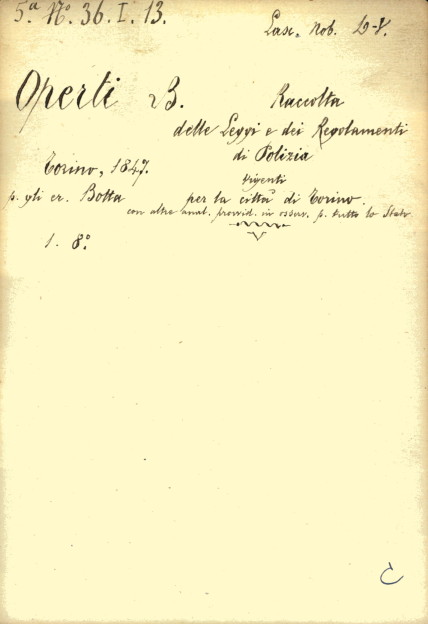 5ª Nº 36. I. 13.
Lasc. Nob. D-V.
Operti B.
Raccolta
delle Leggi e dei Regolamenti
di Polizia
vigenti
per la città di Torino
con altre anal. provvid. in osserv. p. tutto lo Stato
Torino, 1847.
p. gli er. Botta
1. 8º
C